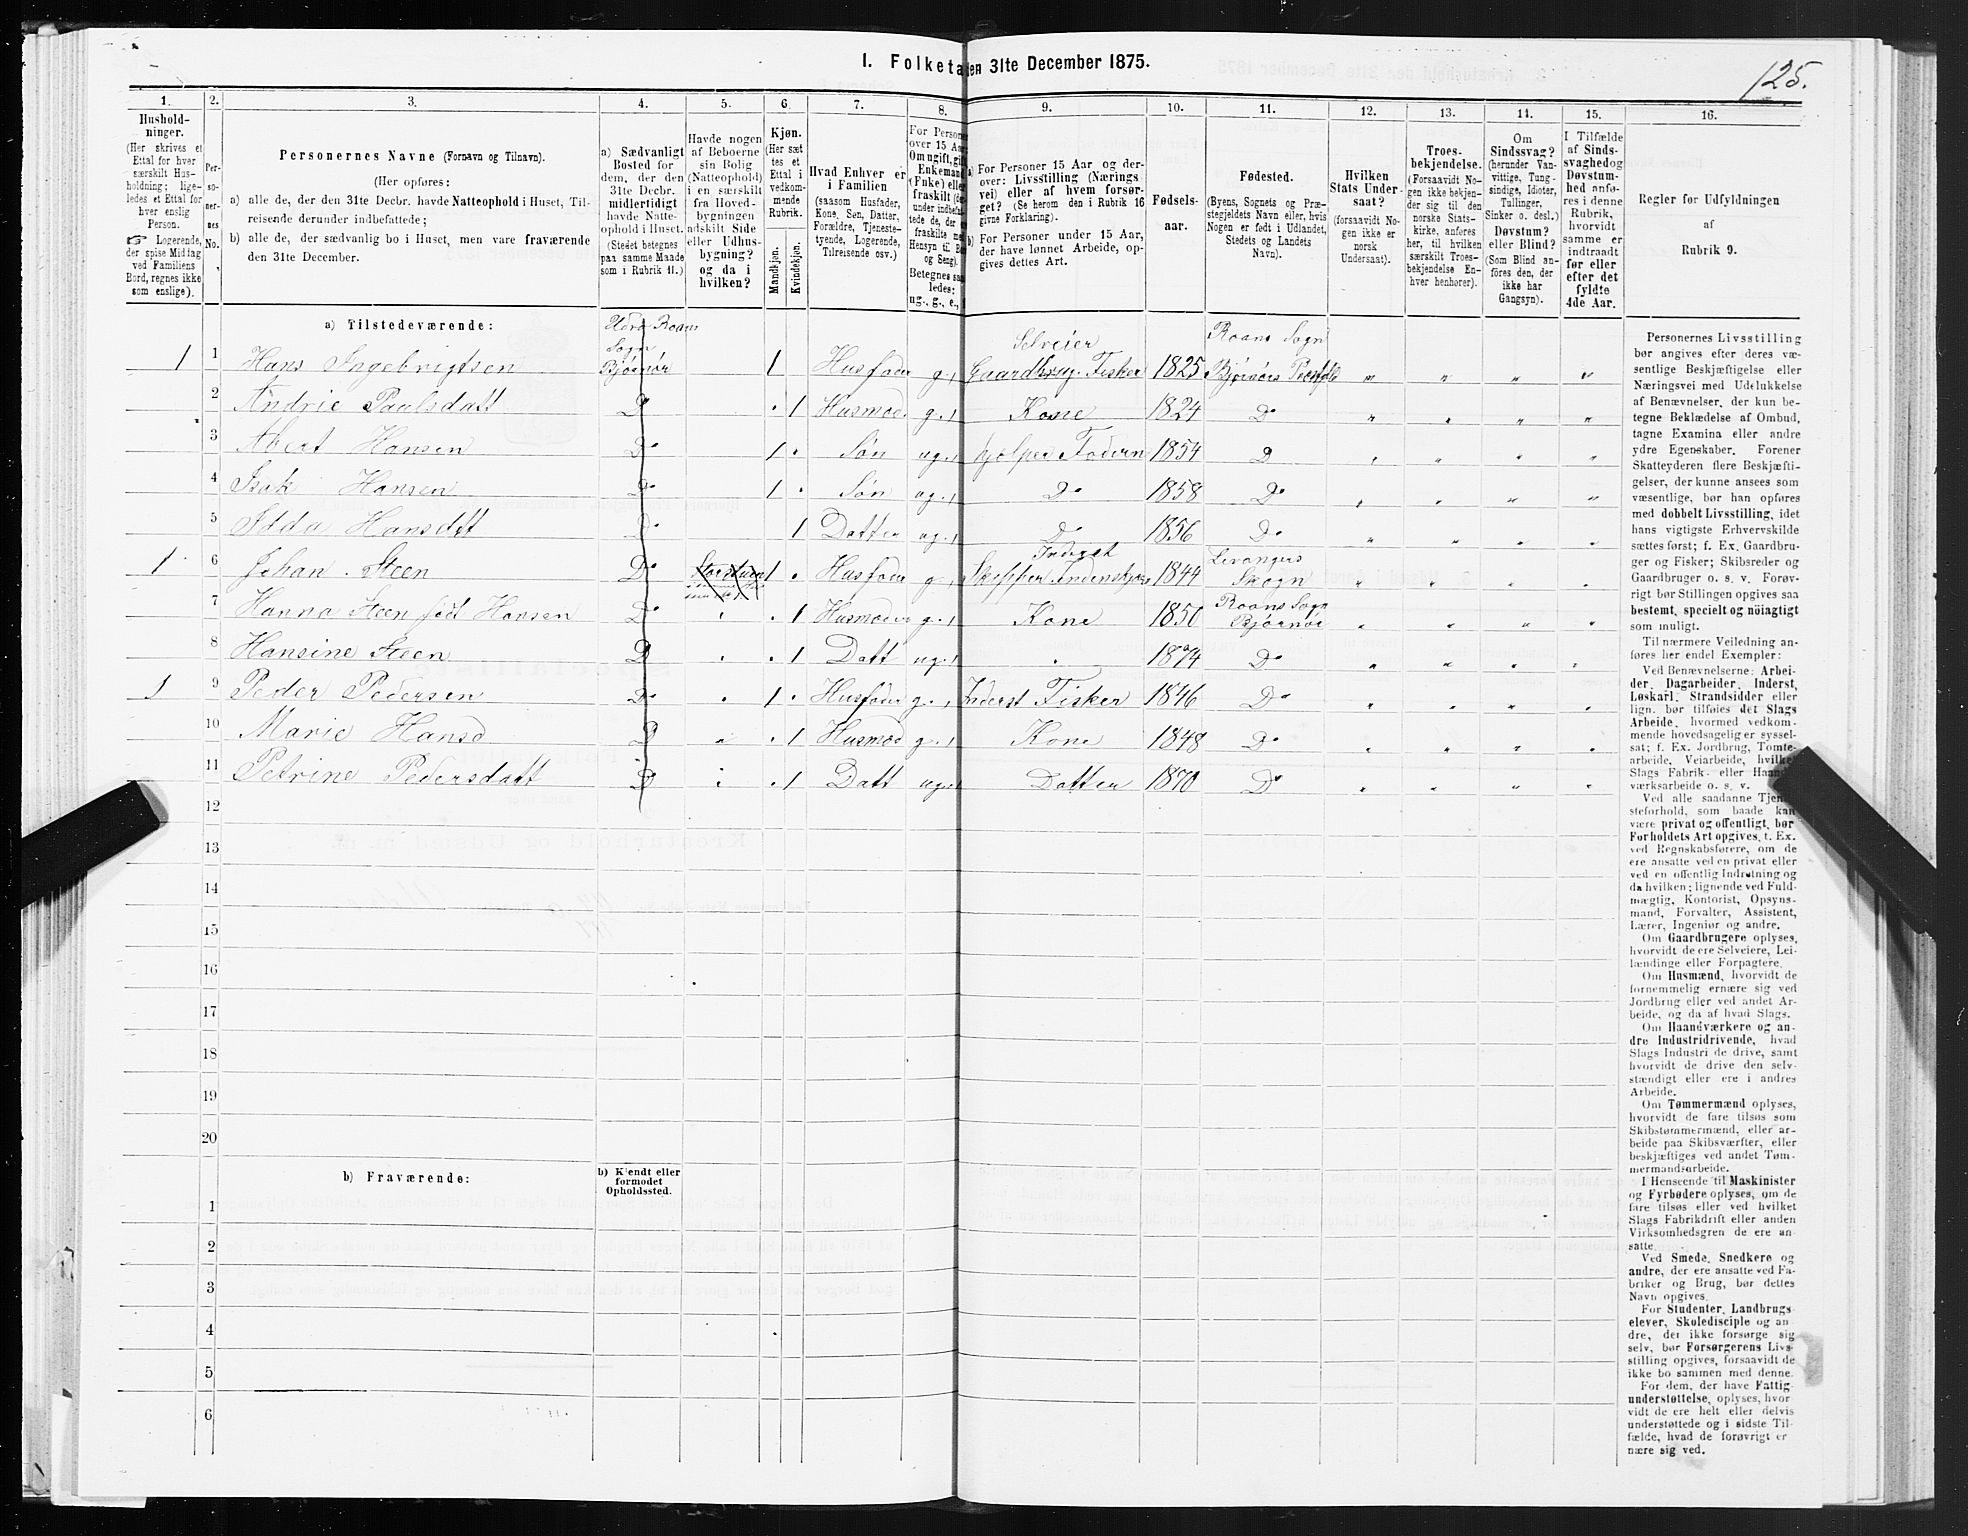 I. Folketa en 31te December 1875.
125.
1. 2. 3. 4. 5. 6. 7. 8. 9. 10. 11. 12. 13. 14. 15. 16.
Hushold-
ninger.
(Her skrives et
Ettal for hver
særskilt Hus-
holdning; lige-
ledes et Ettal for
hver enslig
Person.
☞ Logerende,
der spise Middag
ved Familiens
Bord, regnes ikke
som enslige).
Per-
so-
ner-
nes
No.
Personernes Navne (Fornavn og Tilnavn).
(Her opføres:
a) alle de, der den 31te Decbr. havde Natteophold i Huset, Til-
reisende derunder indbefattede;
b) alle de, der sædvanlig bo i Huset, men vare fraværende
den 31te December.
a) Sædvanligt
Bosted for
dem, der den
31te Decbr.
midlertidigt
havde Natte-
ophold i Huset.
(Stedet betegnes
paa samme Maade
som i Rubrik 11.)
Havde nogen
af Beboerne
sin Bolig
(Natteophold)
i en særskilt
fra Hoved-
bygningen
adskilt Side
eller Udhus-
bygning?
og da i
hvilken?
Kjøn.
(Her sæt
tes et
Ettal i
vedkom-
mende
Rubrik.
Mandkjøn.
Kvindekjøn.
Hvad Enhver er
i Familien
(saasom Husfader,
Kone, Søn, Datter,
Forældre, Tjeneste-
tyende, Logerende,
Tilreisende osv.)
For Person
over 15 Aar
Om ugift, gift
Enkemand
(Enke) eller
fraskilt
Betegnes saa
ledes:
ug., g., e.,
a) For Personer 15 Aar og der-
over: Livsstilling (Nærings
vei) eller af hvem forsør-
get? (Se herom den i Rubrik 16
givne Forklaring).
b) For Personer under 15 Aar,
der have lønnet Arbeide, op-
gives dettes Art.
Fødsels-
aar.
Fødested.
(Byens, Sognets og Præ-
stegjeldets Navn eller, hvis
Nogen er født i Udlandet,
Stedets og Landets
Navn).
Hvilken
Stats Under-
saat?
(forsaavidt No-
gen ikke er
norsk
Undersaat).
Troes-
bekjendelse.
(Forsaavidt No-
gen ikke bekjen-
der sig til den
norske Stats-
kirke, anføres
her, til hvilken
særskilt Troes-
bekjendelse En-
hver henhører).
Om
Sindssvag?
(herunder Van-
vittige, Tung-
sindige, Idioter,
Tullinger,
Sinker o. desl.)
Døvstum?
eller Blind?
(Som Blind an-
føres den, der
ikke har
Gangsyn).
I Tilfælde
af Sinds-
svaghedog
Døvstum-
hed anfø-
res i denne
Rubrik,
hvorvidt
samme er
indtraadt
før eller
efter det
fyldte
4de Aar.
Regler for Udfyldningen
af
Rubrik 9.
a) Tilstedeværende:
Roans Selveier Roans Sogn
Sogn
1 1 Hans Ingebrigtsen Bjørnør 1 Husfader g., Gaardbrug. Fisker 1825 Bjørnørs
2 Andrie Paulsdatt Do 1 Husmod. g., Kone 1824 Do
3 Abert Hansen Do 1 Søn ug., hjælper Faderen 1854 D
4 Isak Hansen Do 1 Søn ug., Do 1858 Do
5 Idda Hansdtt Do 1 Datter ug., Do 1856 Do
Inderst Levangers
1 6 Johan Steen Do 1 Husfader g., Skipper 1844 Skogn
Roans Sogn
7 Hanna Steen født Hansen Do 1 Husmoder g., Kone 1850 Bjørnør
8 Hansine Steen D 1 Datt ug., 1874 Do
1 9 Peder Pedersen Do 1 Husfader g., Inderst Fisker 1846 Do
10 Marie Hansd D 1 Husmod g., Kone 1848 Do
11 Petrine Pedersdatt D 1 Datt ug., Datter 1870 Do
12
13
14
15
16
17
18
19
20
b) Fraværende:
b) Kjendt eller
formodet
Opholdssted.
1
2
3
4
5
6
Personernes Livsstilling
bør angives efter deres væ-
sentlige Beskjæftigelse eller
Næringsvei med Udelukkelse
af Benævnelser, der kun be-
tegne Beklædelse af Ombud,
tagne Examina eller andre
ydre Egenskaber. Forener
Skatteyderen flere Beskjæfti-
gelser, der kunne ansees som
væsentlige, bør han opføres
med dobbelt Livsstilling, idet
hans vigtigste Erhvervskilde
sættes først; f. Ex. Gaardbru-
ger og Fisker; Skibsreder og
Gaardbruger o. s. v. Forøv-
rigt bør Stillingen opgives saa
bestemt, specielt og nöiagtigt
som muligt.
Til nærmere Veiledning an-
føres her endel Exempler:
Ved Benævnelserne: Arbei-
der, Dagarbeider, Inderst,
Løskarl, Strandsidder eller
lign. bør tilføies det Slags
Arbeide, hvormed vedkom-
mende hovedsagelig er syssel-
sat; f. Ex. Jordbrug, Tomte-
arbeide, Veiarbeide, hvilket
Slags Fabrik- eller Haand-
værksarbeide o. s. v.
Ved alle saadanne Tjene-
steforhold, som baade kan
være privat og offentligt, bør
Forholdets Art opgives, f. Ex.
ved Regnskabsførere, om de
ere ansatte ved en privat eller
ved en offentlig Indretning og
da hvilken; lignende ved Fuld-
mægtig, Kontorist, Opsyns-
mand, Forvalter, Assistent,
Lærer, Ingeniør og andre.
Om Gaardbrugere oplyses,
hvorvidt de ere Selveiere, Lei-
lændinge eller Forpagtere.
Om Husmænd, hvorvidt de
fornemmelig ernære sig ved
Jordbrug eller ved andet Ar-
beide, og da af hvad Slags.
Om Haandværkere og an-
dre Industridrivende, hvad
Slags Industri de drive, samt
hvorvidt de drive den selv-
stændigt eller ere i andres
Arbeide.
Om Tømmermænd oplyses,
hvorvidt de fare tilsøs som
Skibstømmermænd, eller ar-
beide paa Skibsværfter, eller
beskjæftiges ved andet Tøm-
mermandsarbeide.
I Henseende til Maskinister
og Fyrbødere oplyses, om de
fare tilsøs eller ved hvilket
Slags Fabrikdrift eller anden
Virksomhedsgren de ere an-
satte.
Ved Smede, Snedkere og
andre, der ere ansatte ved Fa-
briker og Brug, bør dettes
Navn opgives.
For Studenter, Landbrugs-
elever, Skoledisciple og an-
dre, der ikke forsørge sig
selv, bør Forsørgerens Livs-
stilling opgives, forsaavidt de
ikke bo sammen med denne.
For dem, der have Fattig-
understøttelse, oplyses, hvor-
vidt de ere helt eller delvis
understøttede og i sidste Til-
fælde, hvad de forøvrigt er
nære sig ved.